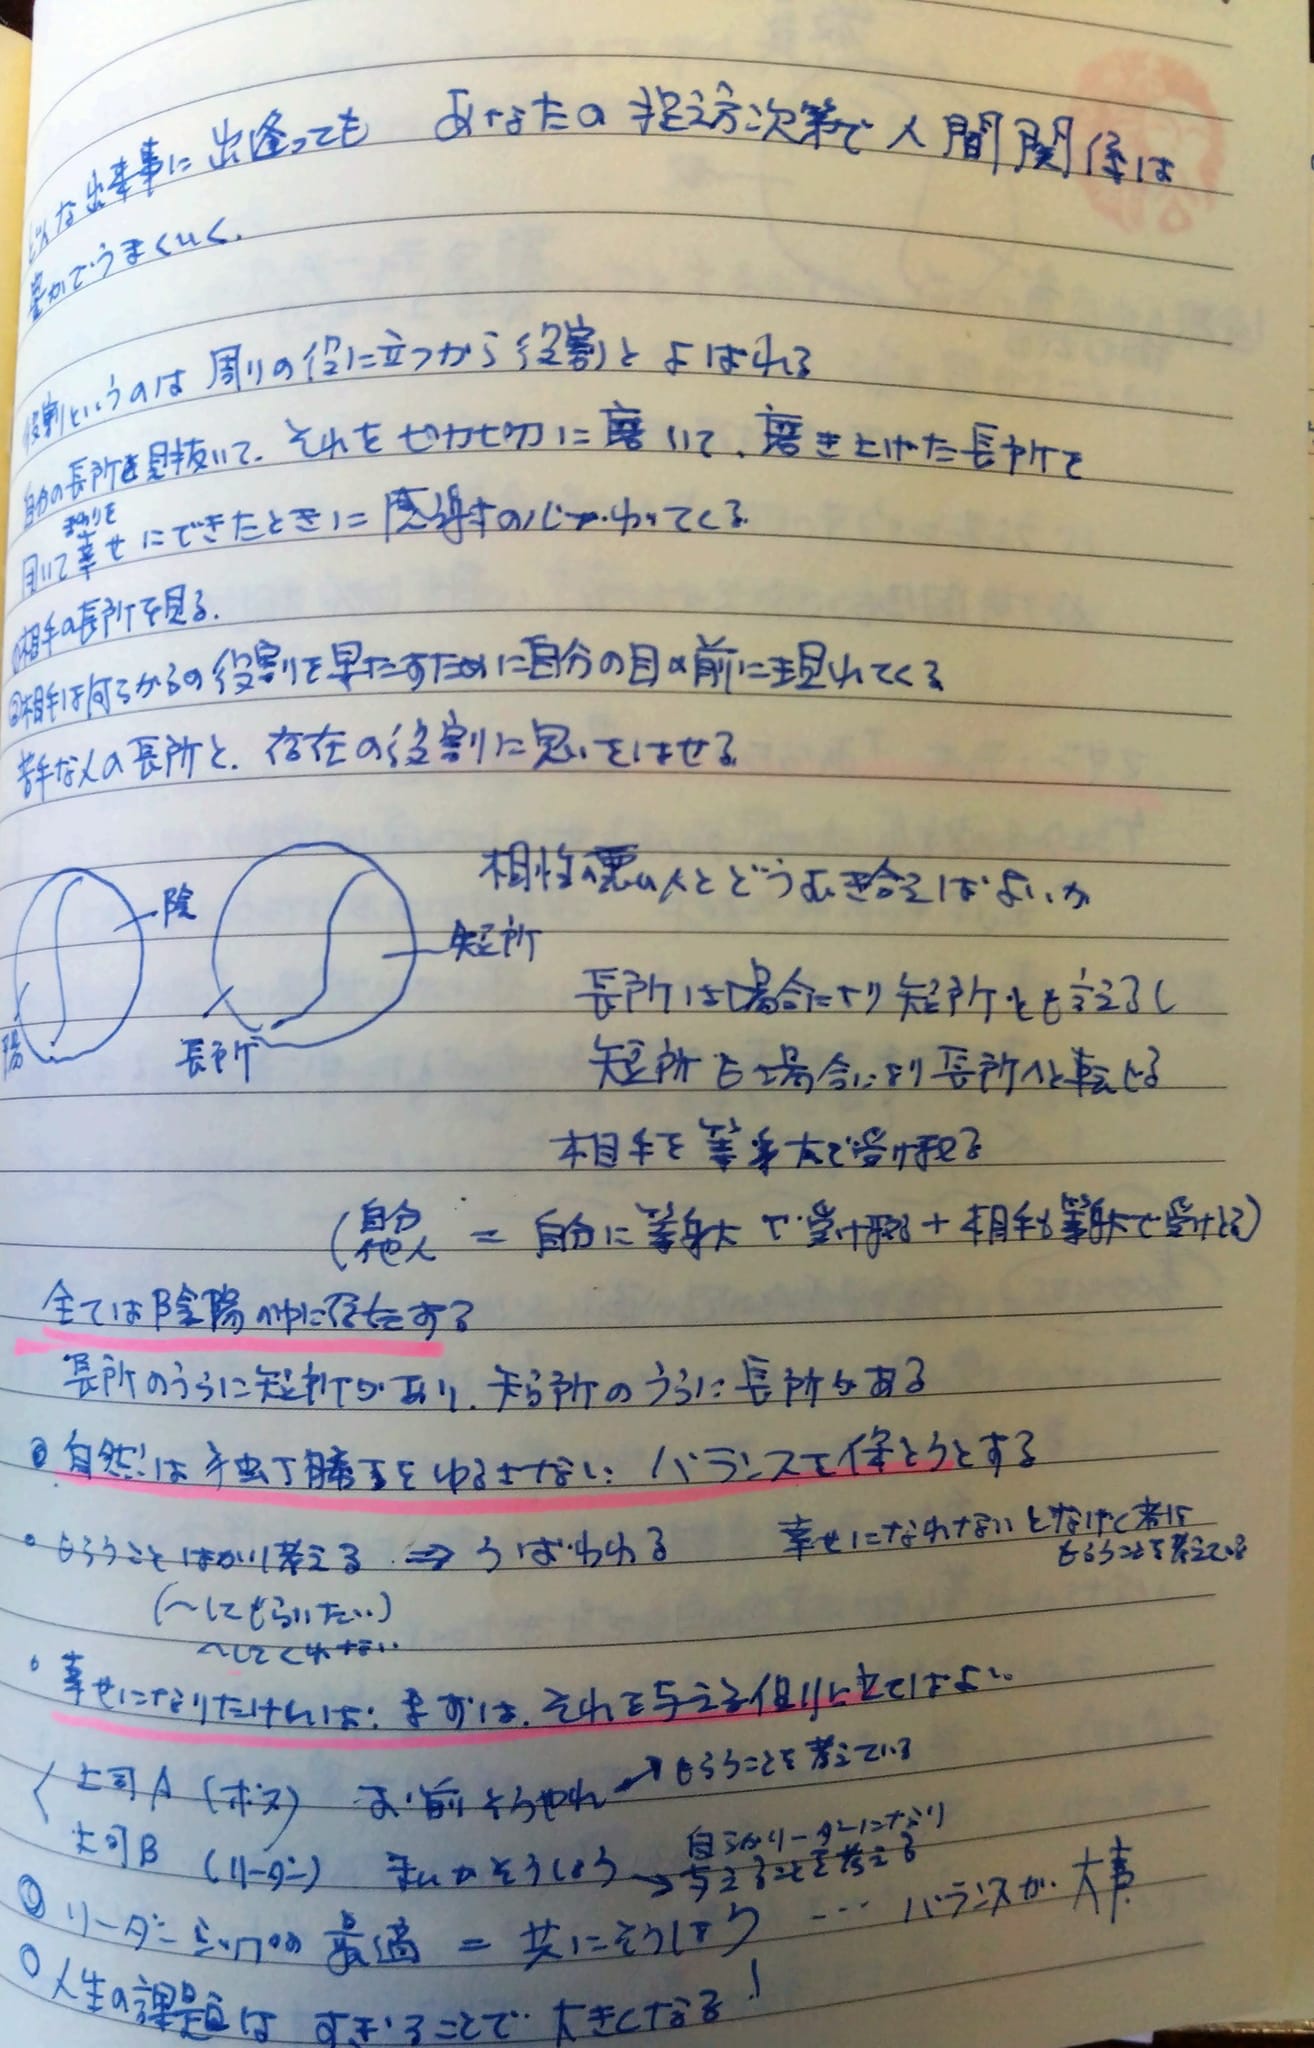 どんな出来事に出逢っても あなたの捉え方次第で人間関係は
豊かでうまくいく.
役割というのは 周りの役に立つから役割とよばれる
自分の長所を見抜いて、それを 磨いて、磨き上げた長所で
まわりを
幸せにできたときに 心が
①相手の長所を見る.
②相手は何らかの役割を果たすために自分の目の前に現れてくる
苦手な人の長所と、存在の役割に思いをはせる
陰
陽
短所
長所
相性の悪い人とどうむき合えばよいか
長所は場合により短所とも言えるし
短所も場合により長所へと転じる
相手を等身大で受け取る
(自分
他人 = 自分に等身大で受け取る + 相手も等身大で受けとる)
全ては陰陽の中に存在する
長所のうらに短所があり、短所のうらに長所がある
自然は をゆるさない: バランスを保とうとする
もらうことばかり考える ⇒ うばわれる
幸せになれないとなげく者は
もらうことを考えている
(〜してもらいたい)
〜してくれない
幸せになりたければ: まずは、それを与える側に立てばよい
上司A (ボス) お前そうやれ → もらうことを考えている
上司B (リーダー) そうしよう → 自らがリーダーになり
与えることを考える
リーダーシップの = 共にそうしよう … バランスが大事
人生の課題は すぎることで 大きくなる!